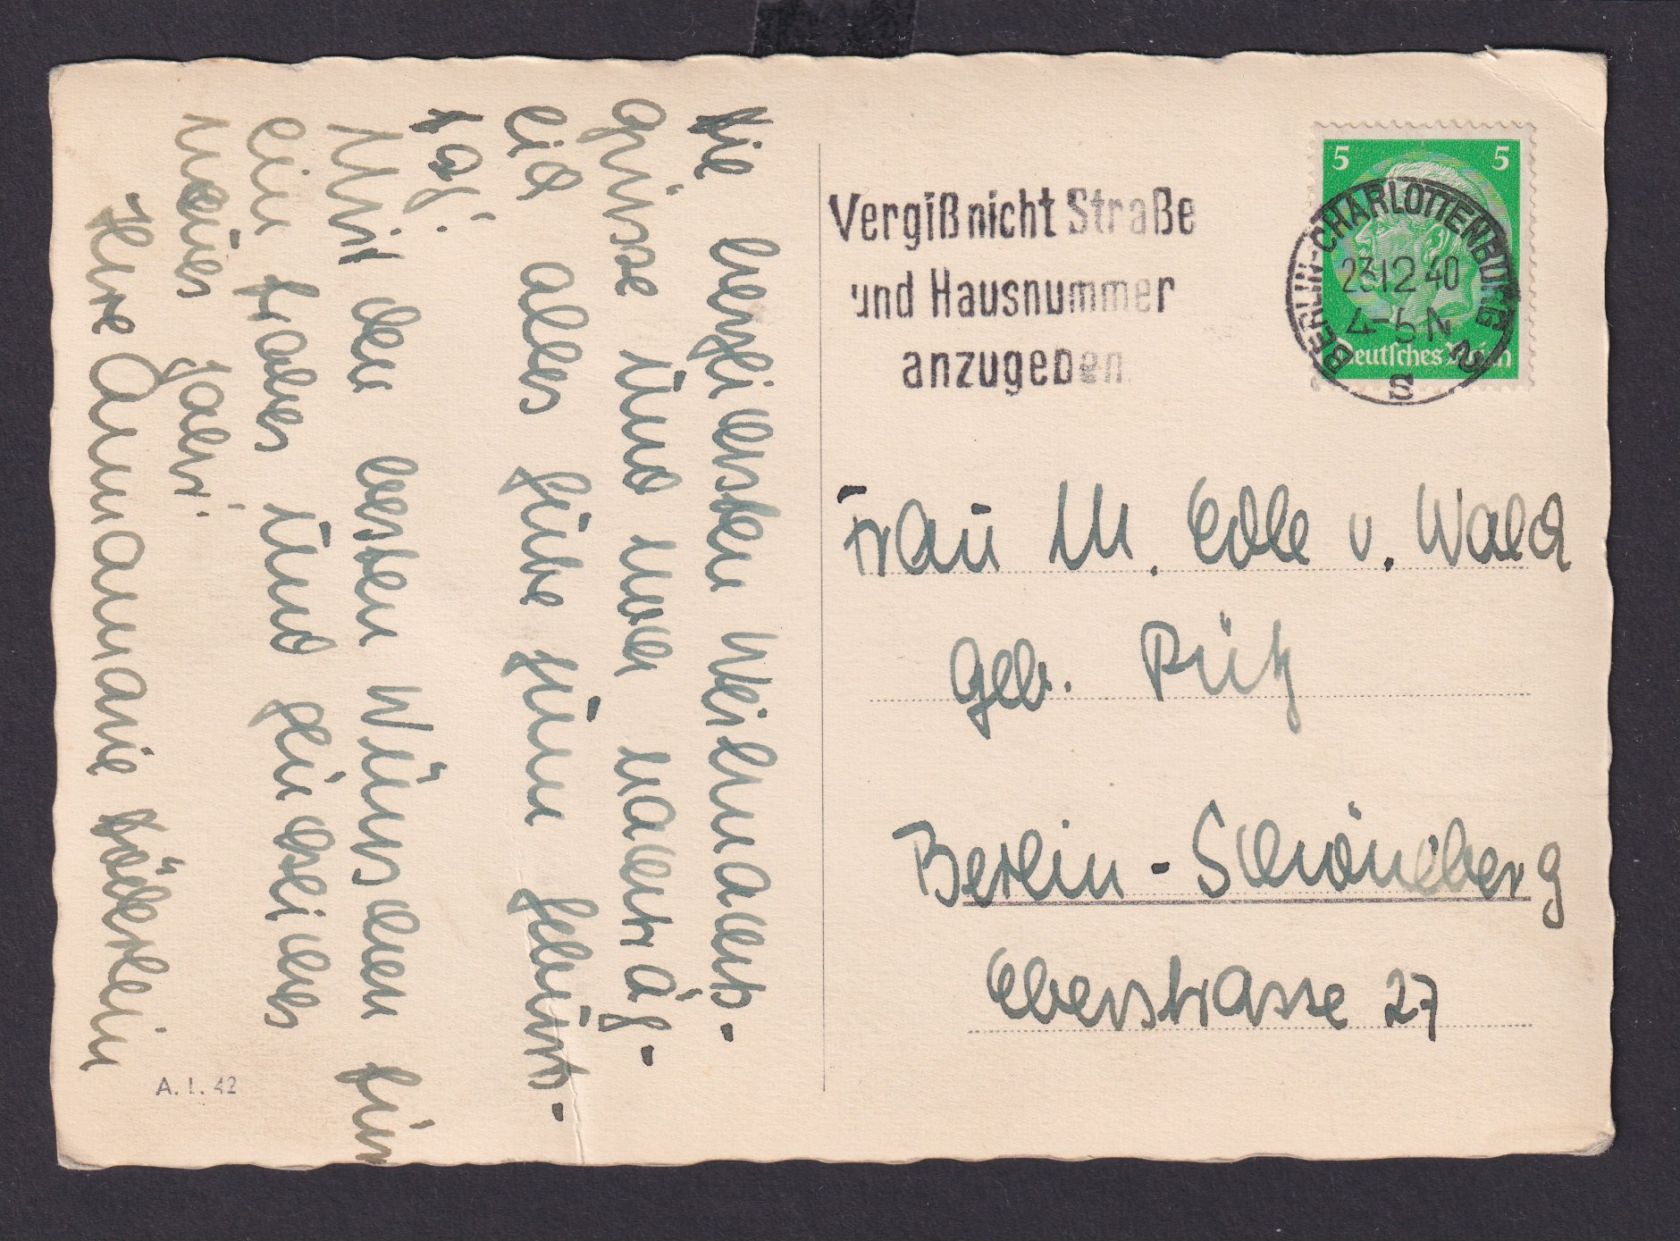 Die herzlichsten Weihnachts-
grüsse und noch nachträg-
lich alles Gute zum Geburts-
tag.
Mit den besten Wünschen für
ein frohes und glückliches
neues Jahr.
Ihre Annamarie Döderlein
A. 1. 42
Vergiß nicht Straße
und Hausnummer
anzugeben
5 5
Deutsches Reich
BERLIN-CHARLOTTENBURG 2
23.12.40
4-5 N
S
Frau M. Edle v. Wald
geb. Pütz
Berlin - Schöneberg
Eberstrasse 27